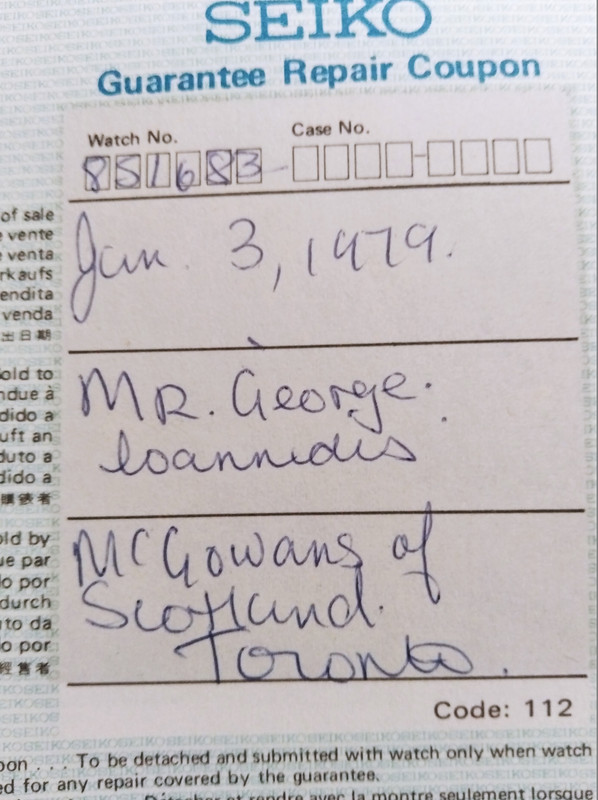 SEIKO
Guarantee Repair Coupon
Watch No.
Case No.
851683
of sale
vente
venta
rkaufs
endita
venda
出日期
Jan. 3, 1979.
old to
ndue à
dido a
uft an
duto a
dido a
購錶者
MR. George
Ioannidis
old by
ue par
do por
durch
uto da
o por
經售者
McGowans of
Scotland.
Toronto.
Code: 112
pon . . . To be detached and submitted with watch only when watch
ed for any repair covered by the guarantee.
Détacher et rendre avec la montre seulement lorsque